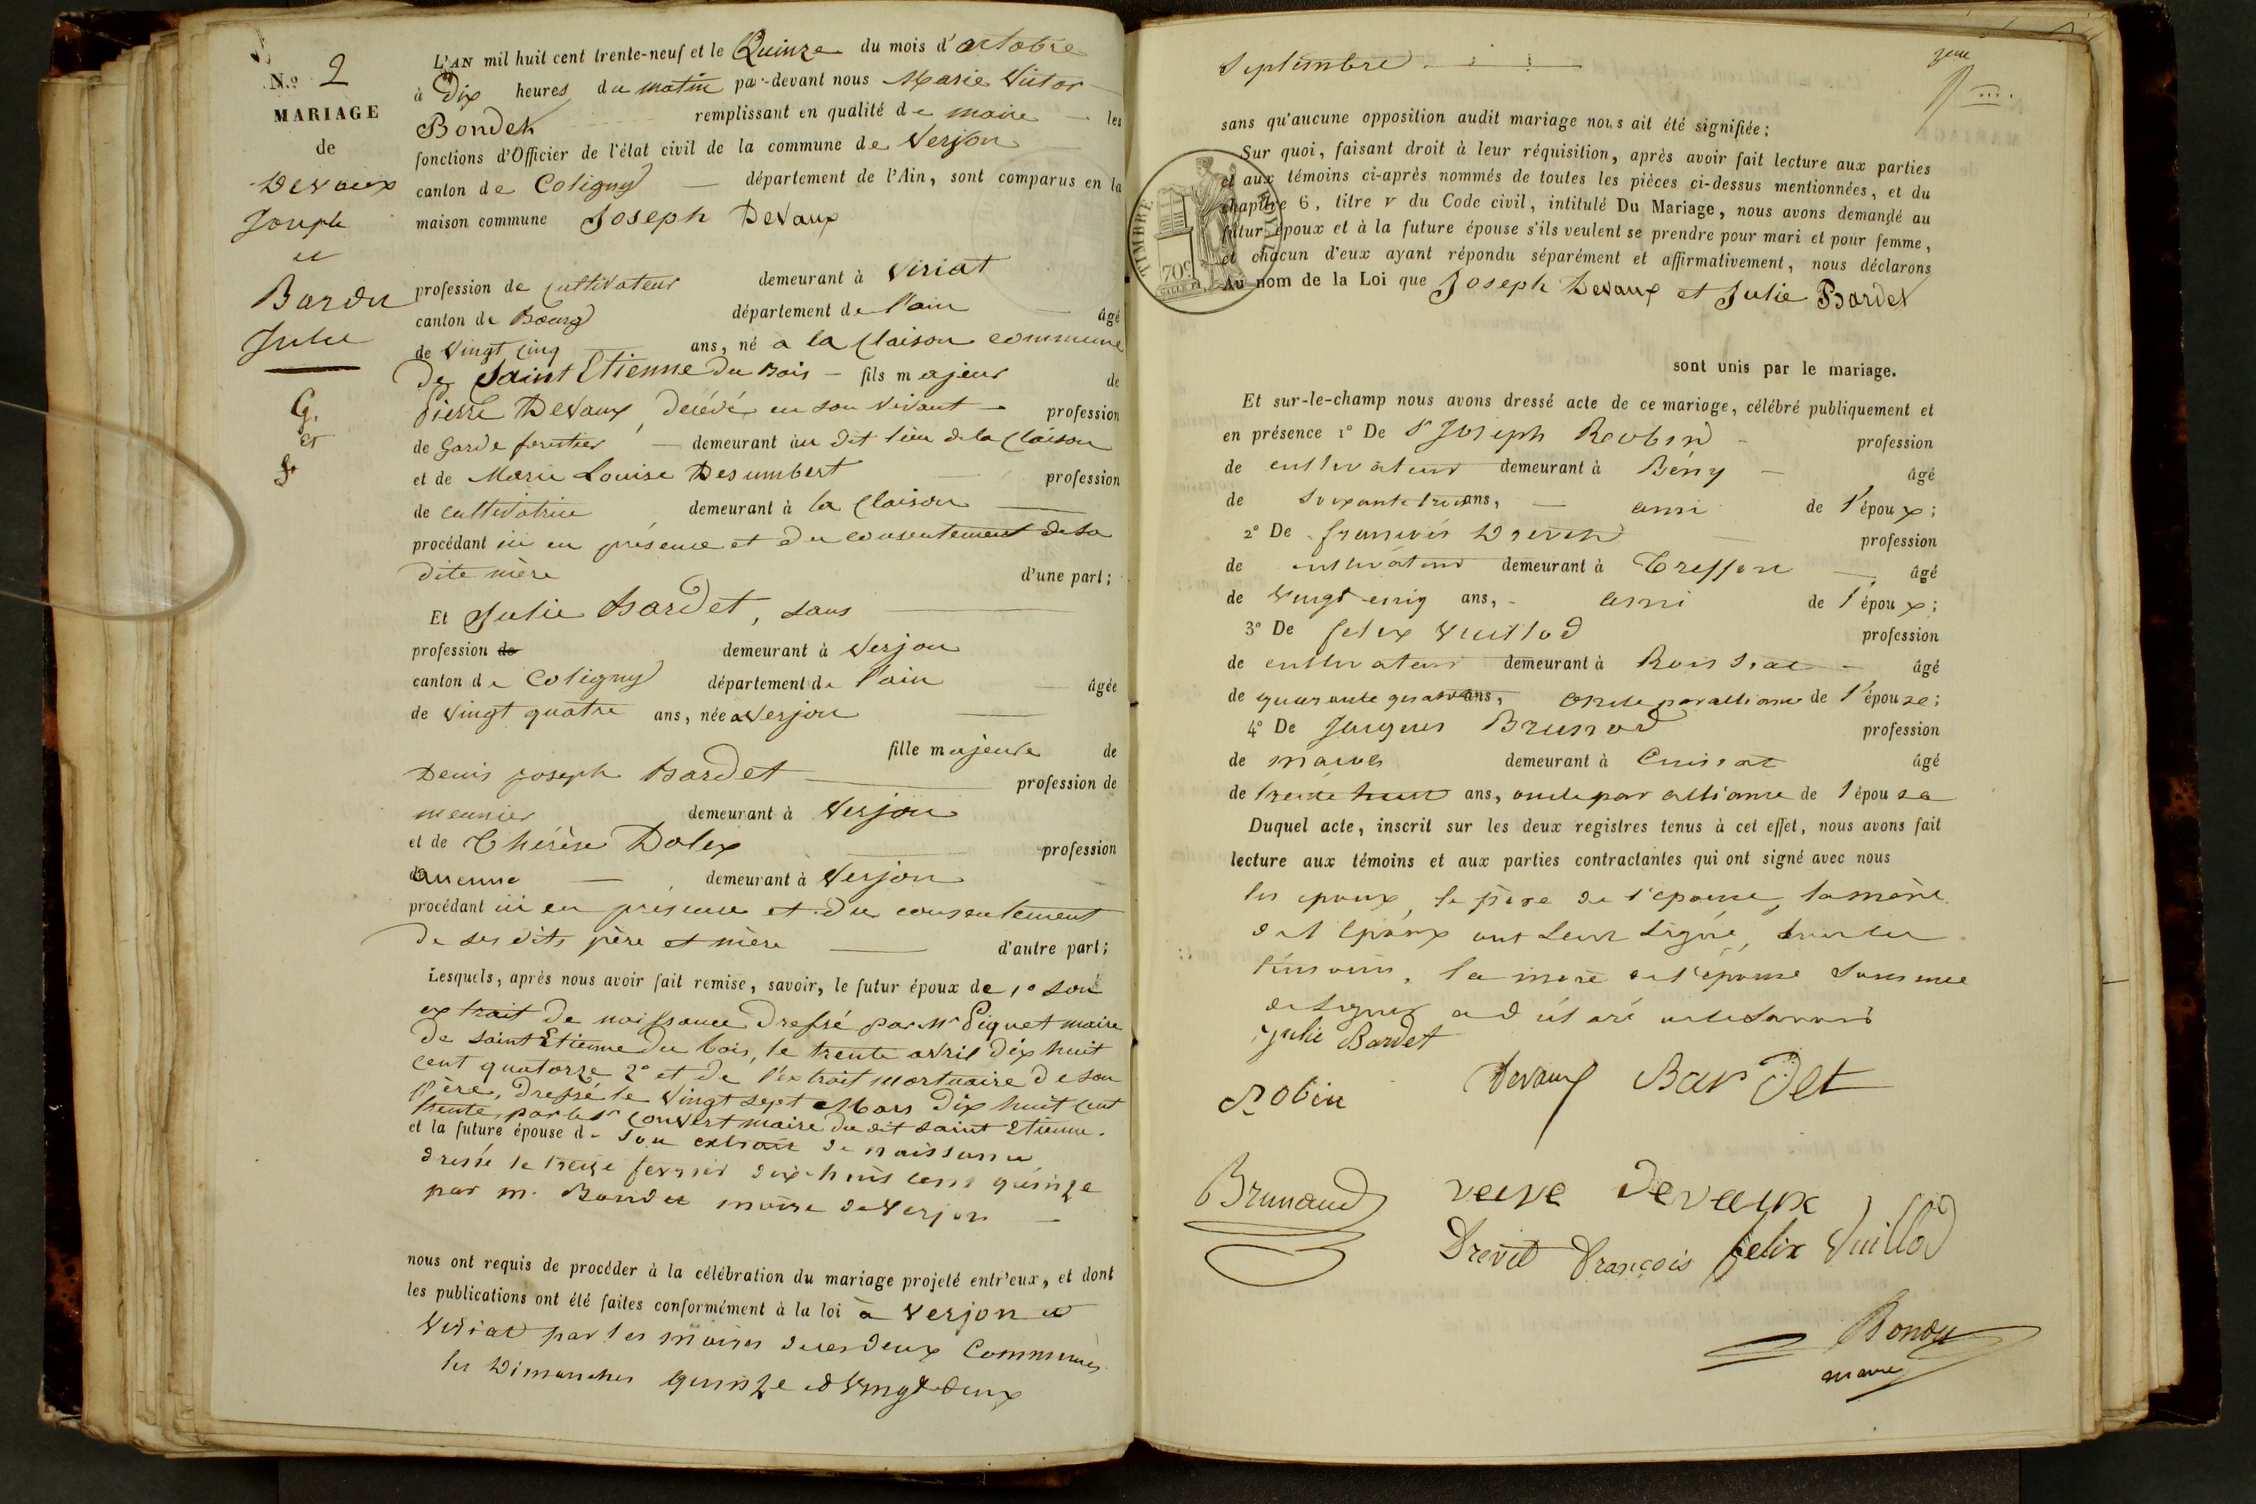 N.º 2
MARIAGE
de
Devaux
Joseph
et
Bardet
Julie
G.
et
L'AN mil huit cent trente-neuf et le Quinze du mois d'octobre
à Dix heures du matin par-devant nous Marie Victor
Bondet remplissant en qualité de maire les
fonctions d'Officier de l'état civil de la commune de Verjon
canton de Coligny département de l'Ain, sont comparus en la
maison commune Joseph Devaux
profession de cultivateur demeurant à Viriat
canton de Bourg département de l'ain âgé
de Vingt cinq ans, né a la Claison commune
de Saint Etienne du Bois fils majeur de
pierre Devaux, décédé en son vivant profession
de Garde forestier demeurant au dit lieu de la Claison
et de Marie Louise Desumbert profession
de cultivatrice demeurant à la Claison
procédant ici en présence et du consentement de sa
dite mère d'une part;
Et Julie Bardet, sans
profession de demeurant à Verjon
canton de Coligny département de l'ain âgée
de Vingt quatre ans, née a Verjon
fille majeure de
Denis joseph Bardet profession de
meunier demeurant à Verjon
et de Thérèse Dolex profession
aucune demeurant à Verjon
procédant ici en présence et du consentement
de ses dits père et mère d'autre part;
Lesquels, après nous avoir fait remise, savoir, le futur époux de 1º son
extrait de naissance dressé par Mr Piquet maire
de Saint Etienne du bois, le trente avril dix huit
cent quatorze 2º et de l'extrait mortuaire de son
père, dressé le Vingt sept Mars Dix huit cent
trente, par le Sr Convert maire du dit Saint Etienne.
et la future épouse de son extrait de naissance
dressé le treize fevrier dix-huit cent quinze
par m. Bondet maire de Verjon
nous ont requis de procéder à la célébration du mariage projeté entr'eux, et dont
les publications ont été faites conformément à la loi à Verjon et
Viriat par les maires de ces deux Communes
les Dimanches quinze et Vingt deux
Septembre
sans qu'aucune opposition audit mariage nous ait été signifiée;
Sur quoi, faisant droit à leur réquisition, après avoir fait lecture aux parties
et aux témoins ci-après nommés de toutes les pièces ci-dessus mentionnées, et du
chapitre 6, titre v du Code civil, intitulé Du Mariage, nous avons demandé au
futur époux et à la future épouse s'ils veulent se prendre pour mari et pour femme,
et chacun d'eux ayant répondu séparément et affirmativement, nous déclarons
Au nom de la Loi que Joseph Devaux et Julie Bardet
TIMBRE ROYAL
70c
sont unis par le mariage.
Et sur-le-champ nous avons dressé acte de ce mariage, célébré publiquement et
en présence 1º De Sr Joseph Roobin profession
de cultivateur demeurant à Bény âgé
de soixante trois ans, ami de l'époux;
2º De françois Drevet profession
de cultivateur demeurant à Treffort âgé
de Vingt cinq ans, ami de l'époux;
3º De felix Vuillod profession
de cultivateur demeurant à Roissiat âgé
de quarante quatre ans, oncle par alliance de l'épouse;
4º De Jacques Brunod profession
de demeurant à Cuisiat âgé
de trente huit ans, oncle par alliance de l'épouse
Duquel acte, inscrit sur les deux registres tenus à cet effet, nous avons fait
lecture aux témoins et aux parties contractantes qui ont signé avec nous
les epoux, le père de l'epouse, la mère
de l'époux ont seuls signé, tous les
témoins, la mère de l'épouse
de signer a déclaré ne le savoir
Julie Bardet
Robin Devaux Bardet
Brunaud veuve devaux
Drevet François felix Vuillod
Bondet
maire